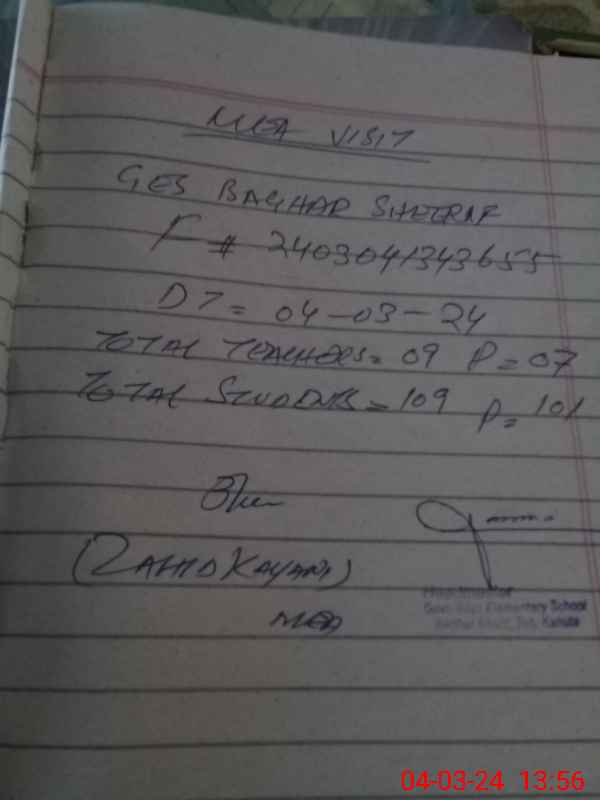 MEA VISIT
GES BAGHAR SHEERAF
F # 2403041343655
DT = 04-03-24
TOTAL TEACHERS = 09 P = 07
TOTAL STUDENTS = 109 P = 101
(ZAHID KAYANI)
MEA
Headmaster
Govt Boys Elementary School
Kahuta
04-03-24 13:56